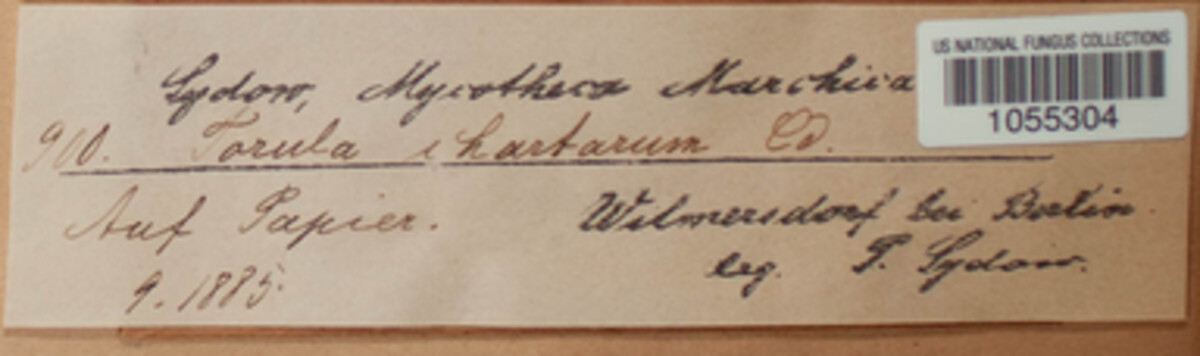 US NATIONAL FUNGUS COLLECTIONS
1055304
Sydow, Mycotheca Marchica
910. Torula chartarum Cd.
Auf Papier.
Wilmersdorf bei Berlin.
9. 1885.
leg. P. Sydow.